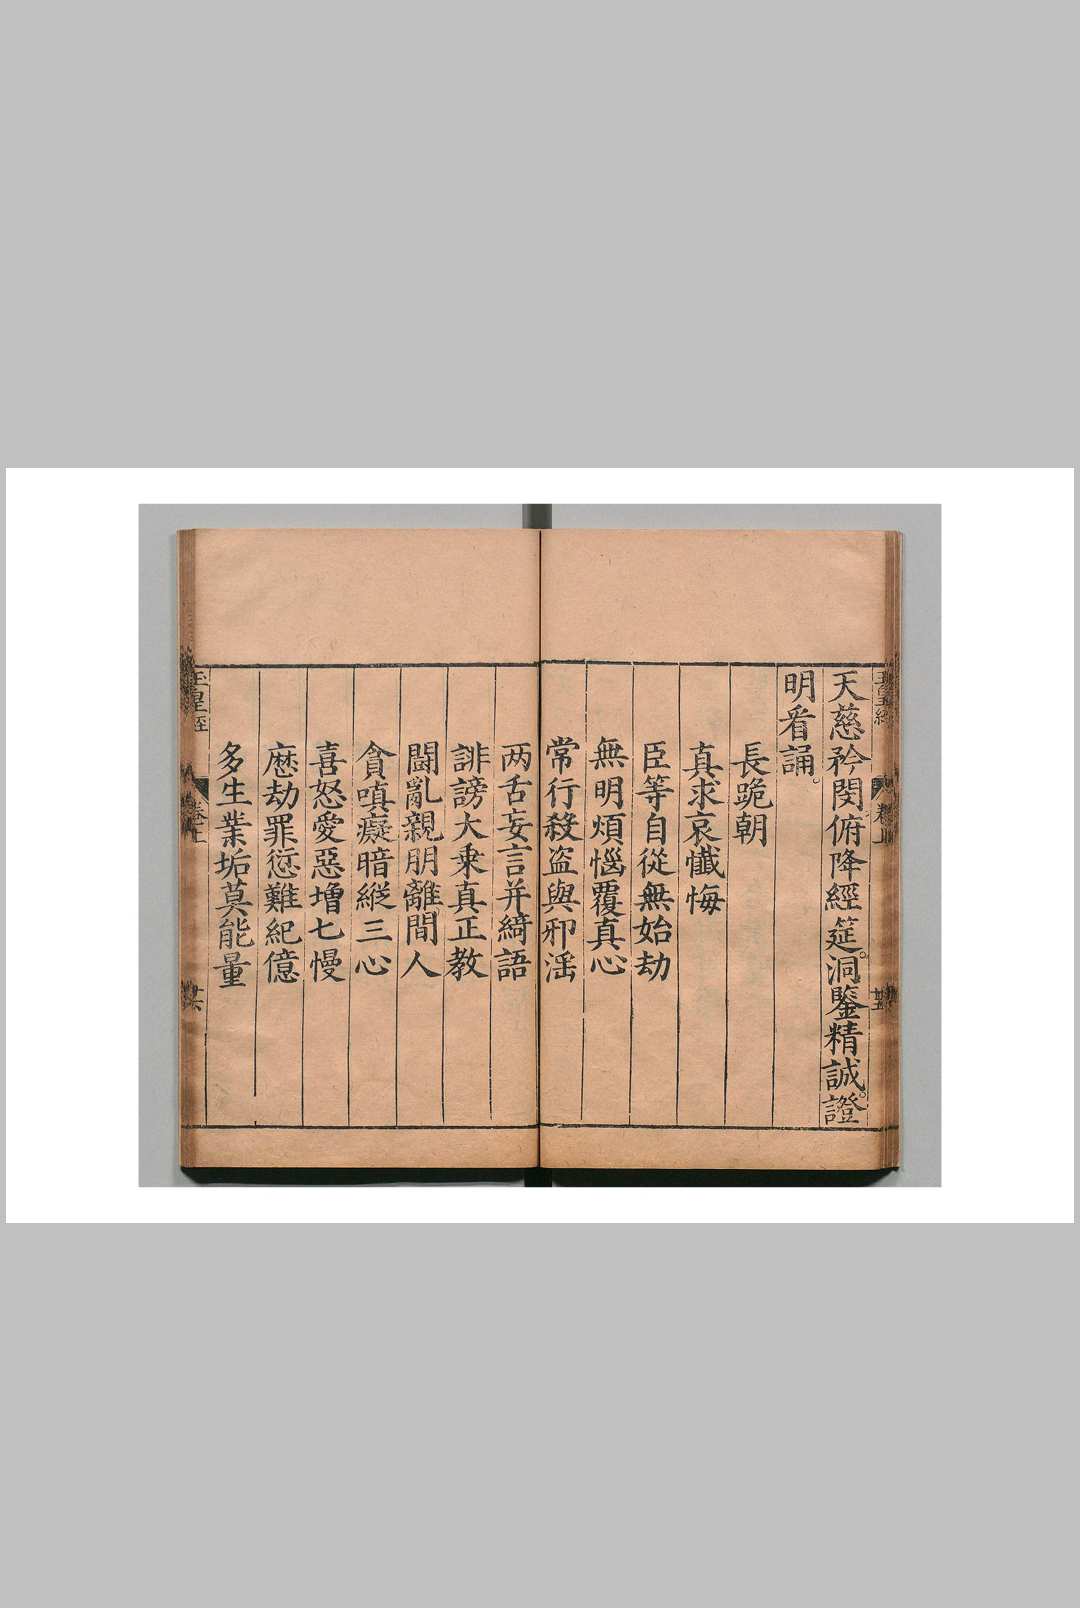 天慈矜閔俯降經筵。洞鑒精誠。證
明看誦。
長跪朝
真求哀懺悔
臣等自從無始劫
無明煩惱覆真心
常行殺盗與邪滛
两舌妄言并綺語
誹謗大乗真正教
鬪亂親朋離間人
貪嗔癡暗縦三心
喜怒愛惡増七慢
歴劫罪愆難紀億
多生業垢莫能量
玉皇經
卷上
廿五
玉皇經
卷上
廿六